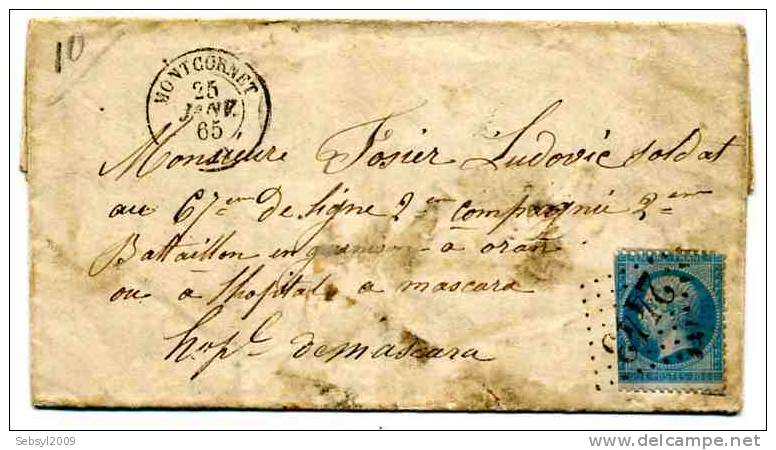 10
MONTCORNET
25
JANV.
65
Monsieure Fosier Ludovic soldat
au 67em De ligne 2em compagnie 2em
Battaillon en garnison à oran
ou à lhopital a mascara
hopl de mascara
POSTES
Sebsyl2009
delcampe.net